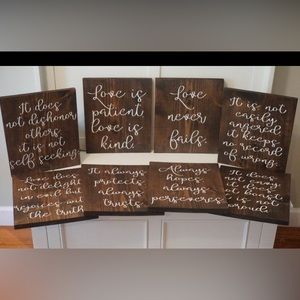 It does
not dishonor
others
it is not
self seeking.
Love is
patient
love is
kind.
Love
never
fails.
It is not
easily
angered
it keeps
no record
of wrong.
Love does
not delight
in evil but
rejoices with
the truth
It always
protects
always
trusts.
Always
hopes
always
perseveres.
It does
not envy
it does not
boast it
is not
proud.